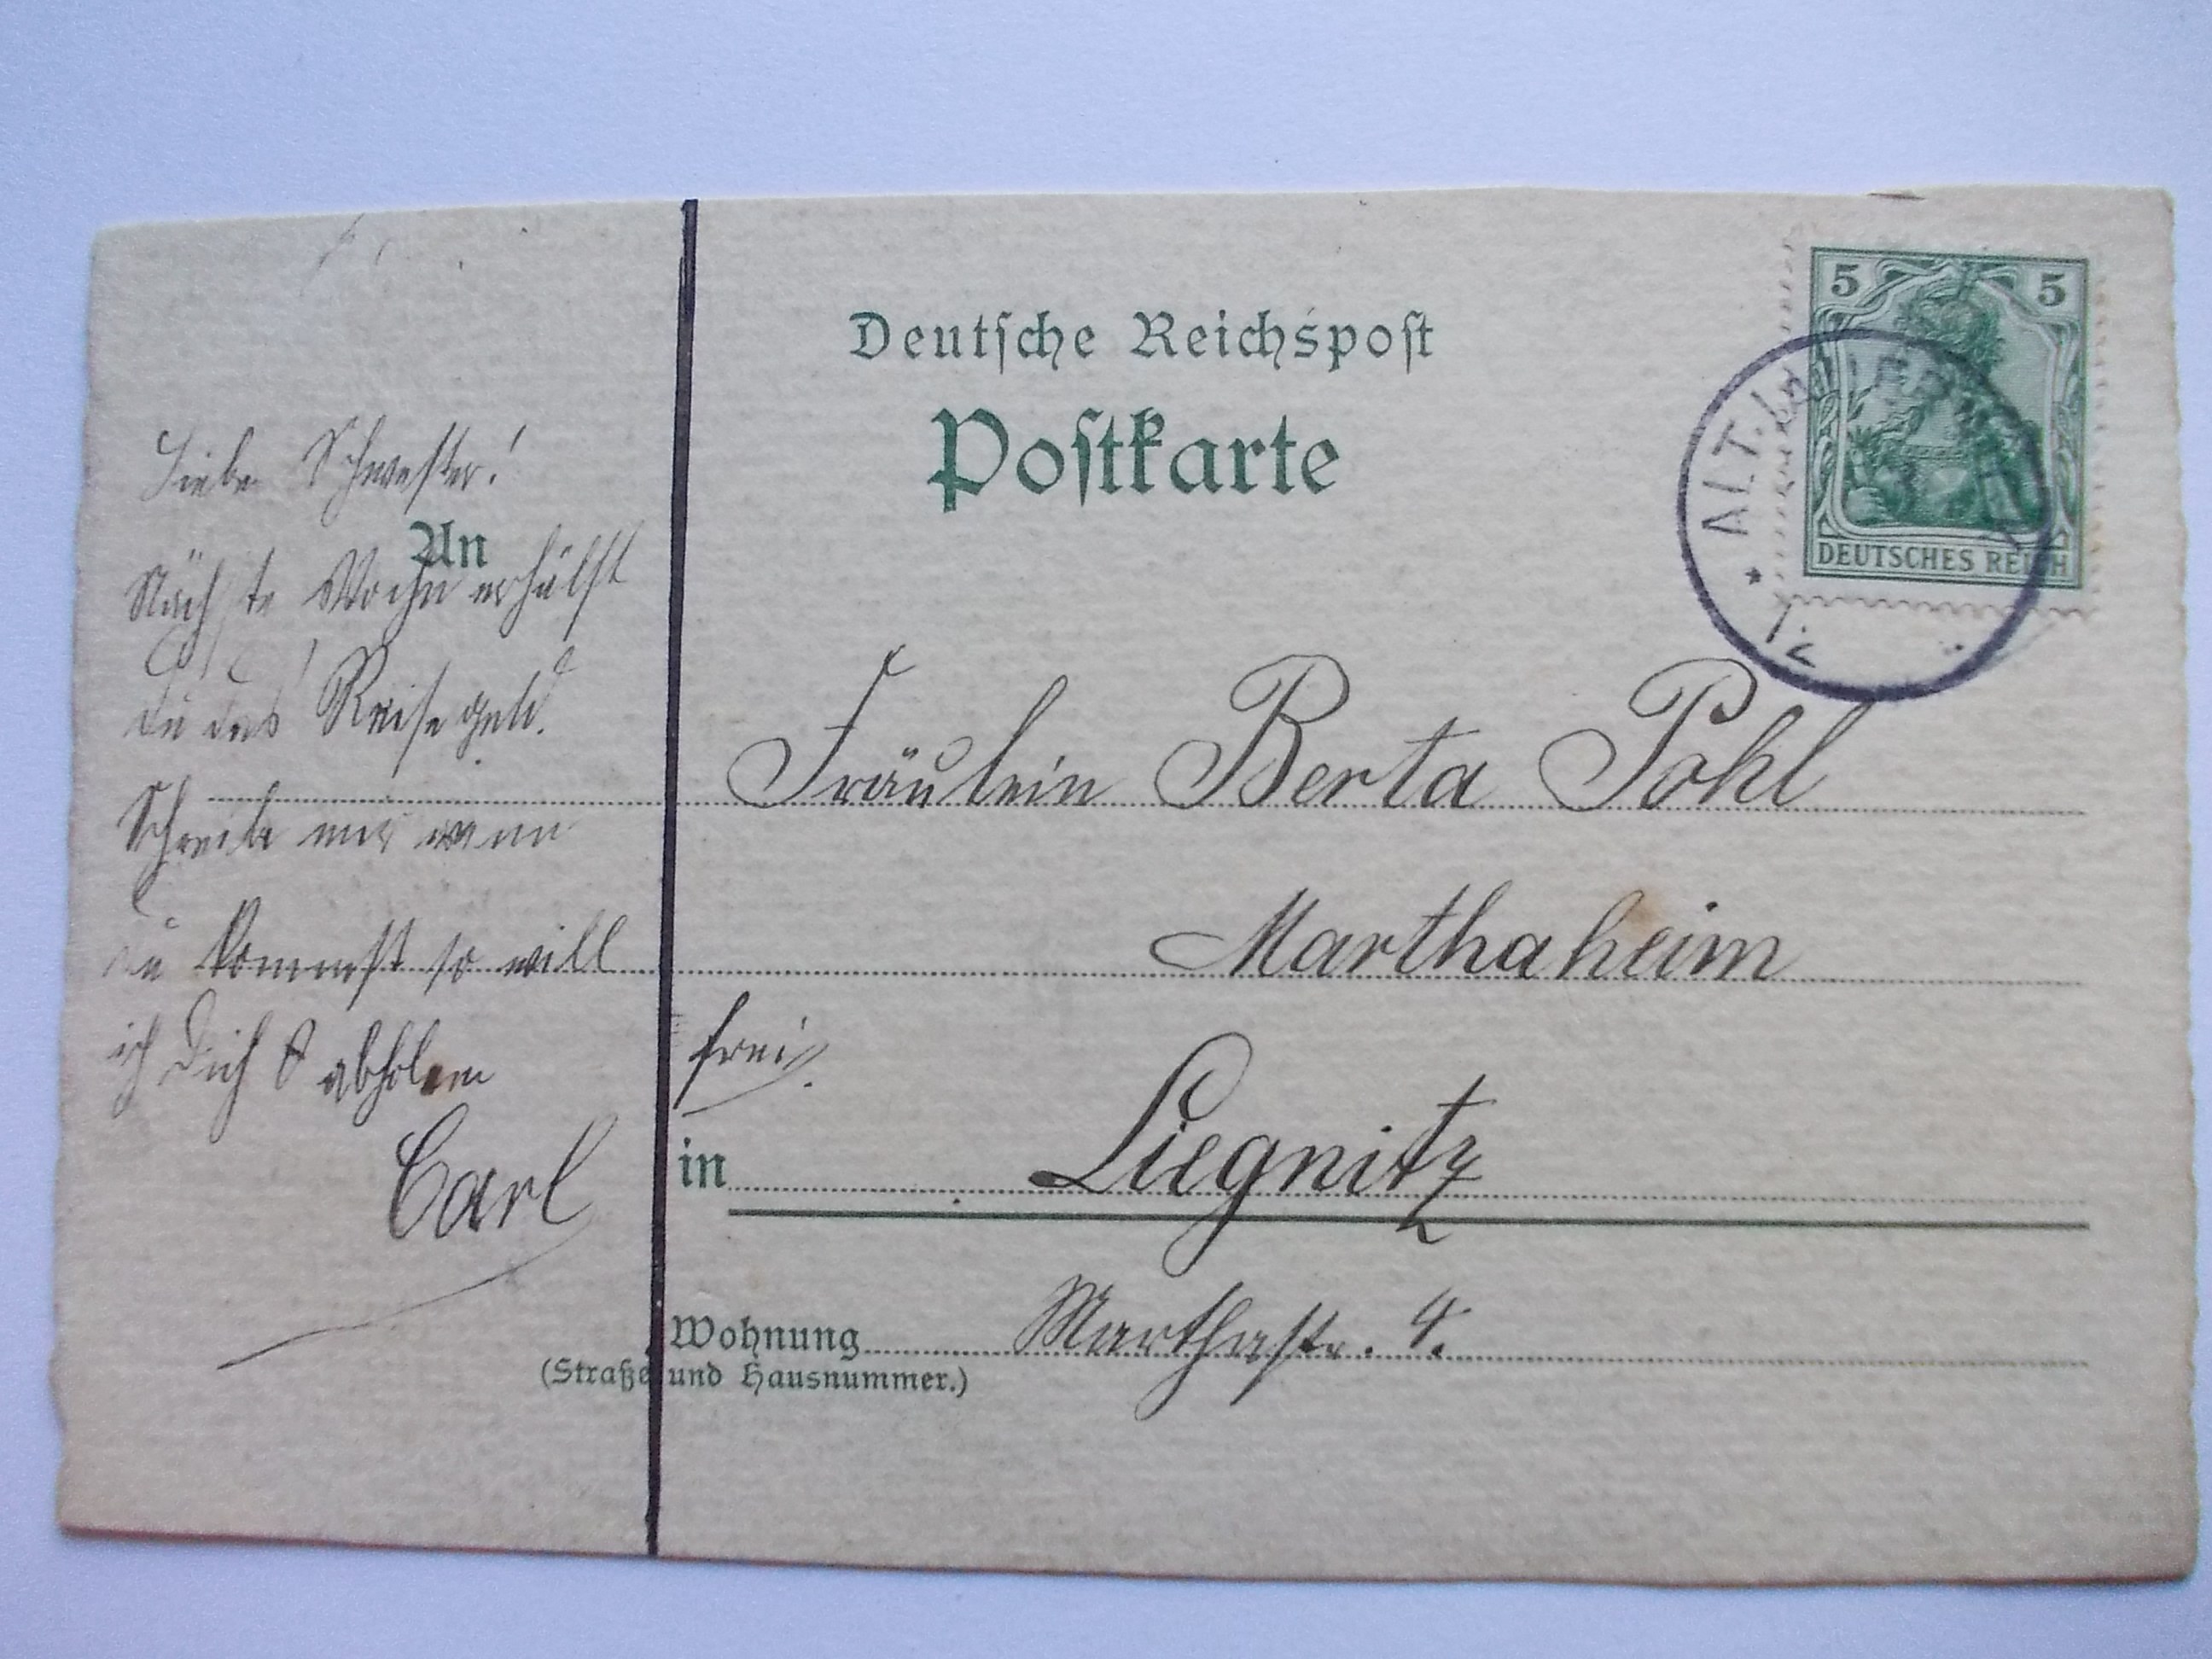 Deutsche Reichspost
Postkarte
5 5
DEUTSCHES REICH
ALT.
An
Liebe Schwester!
Nächste Woche erhälst
Du das Reisegeld.
Schreibe mir wann
Du kommst so will
ich Dich abholen
Carl
Fräulein Berta Pohl
Marthaheim
frei.
in Liegnitz
Wohnung Marthastr. 4.
(Straße und Hausnummer.)